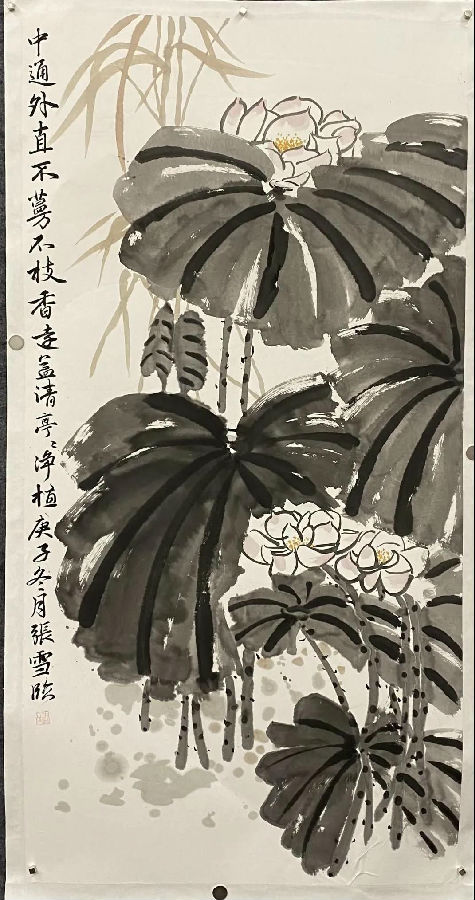 中通外直不蔓不枝香远益清亭亭净植庚子冬月張雪临